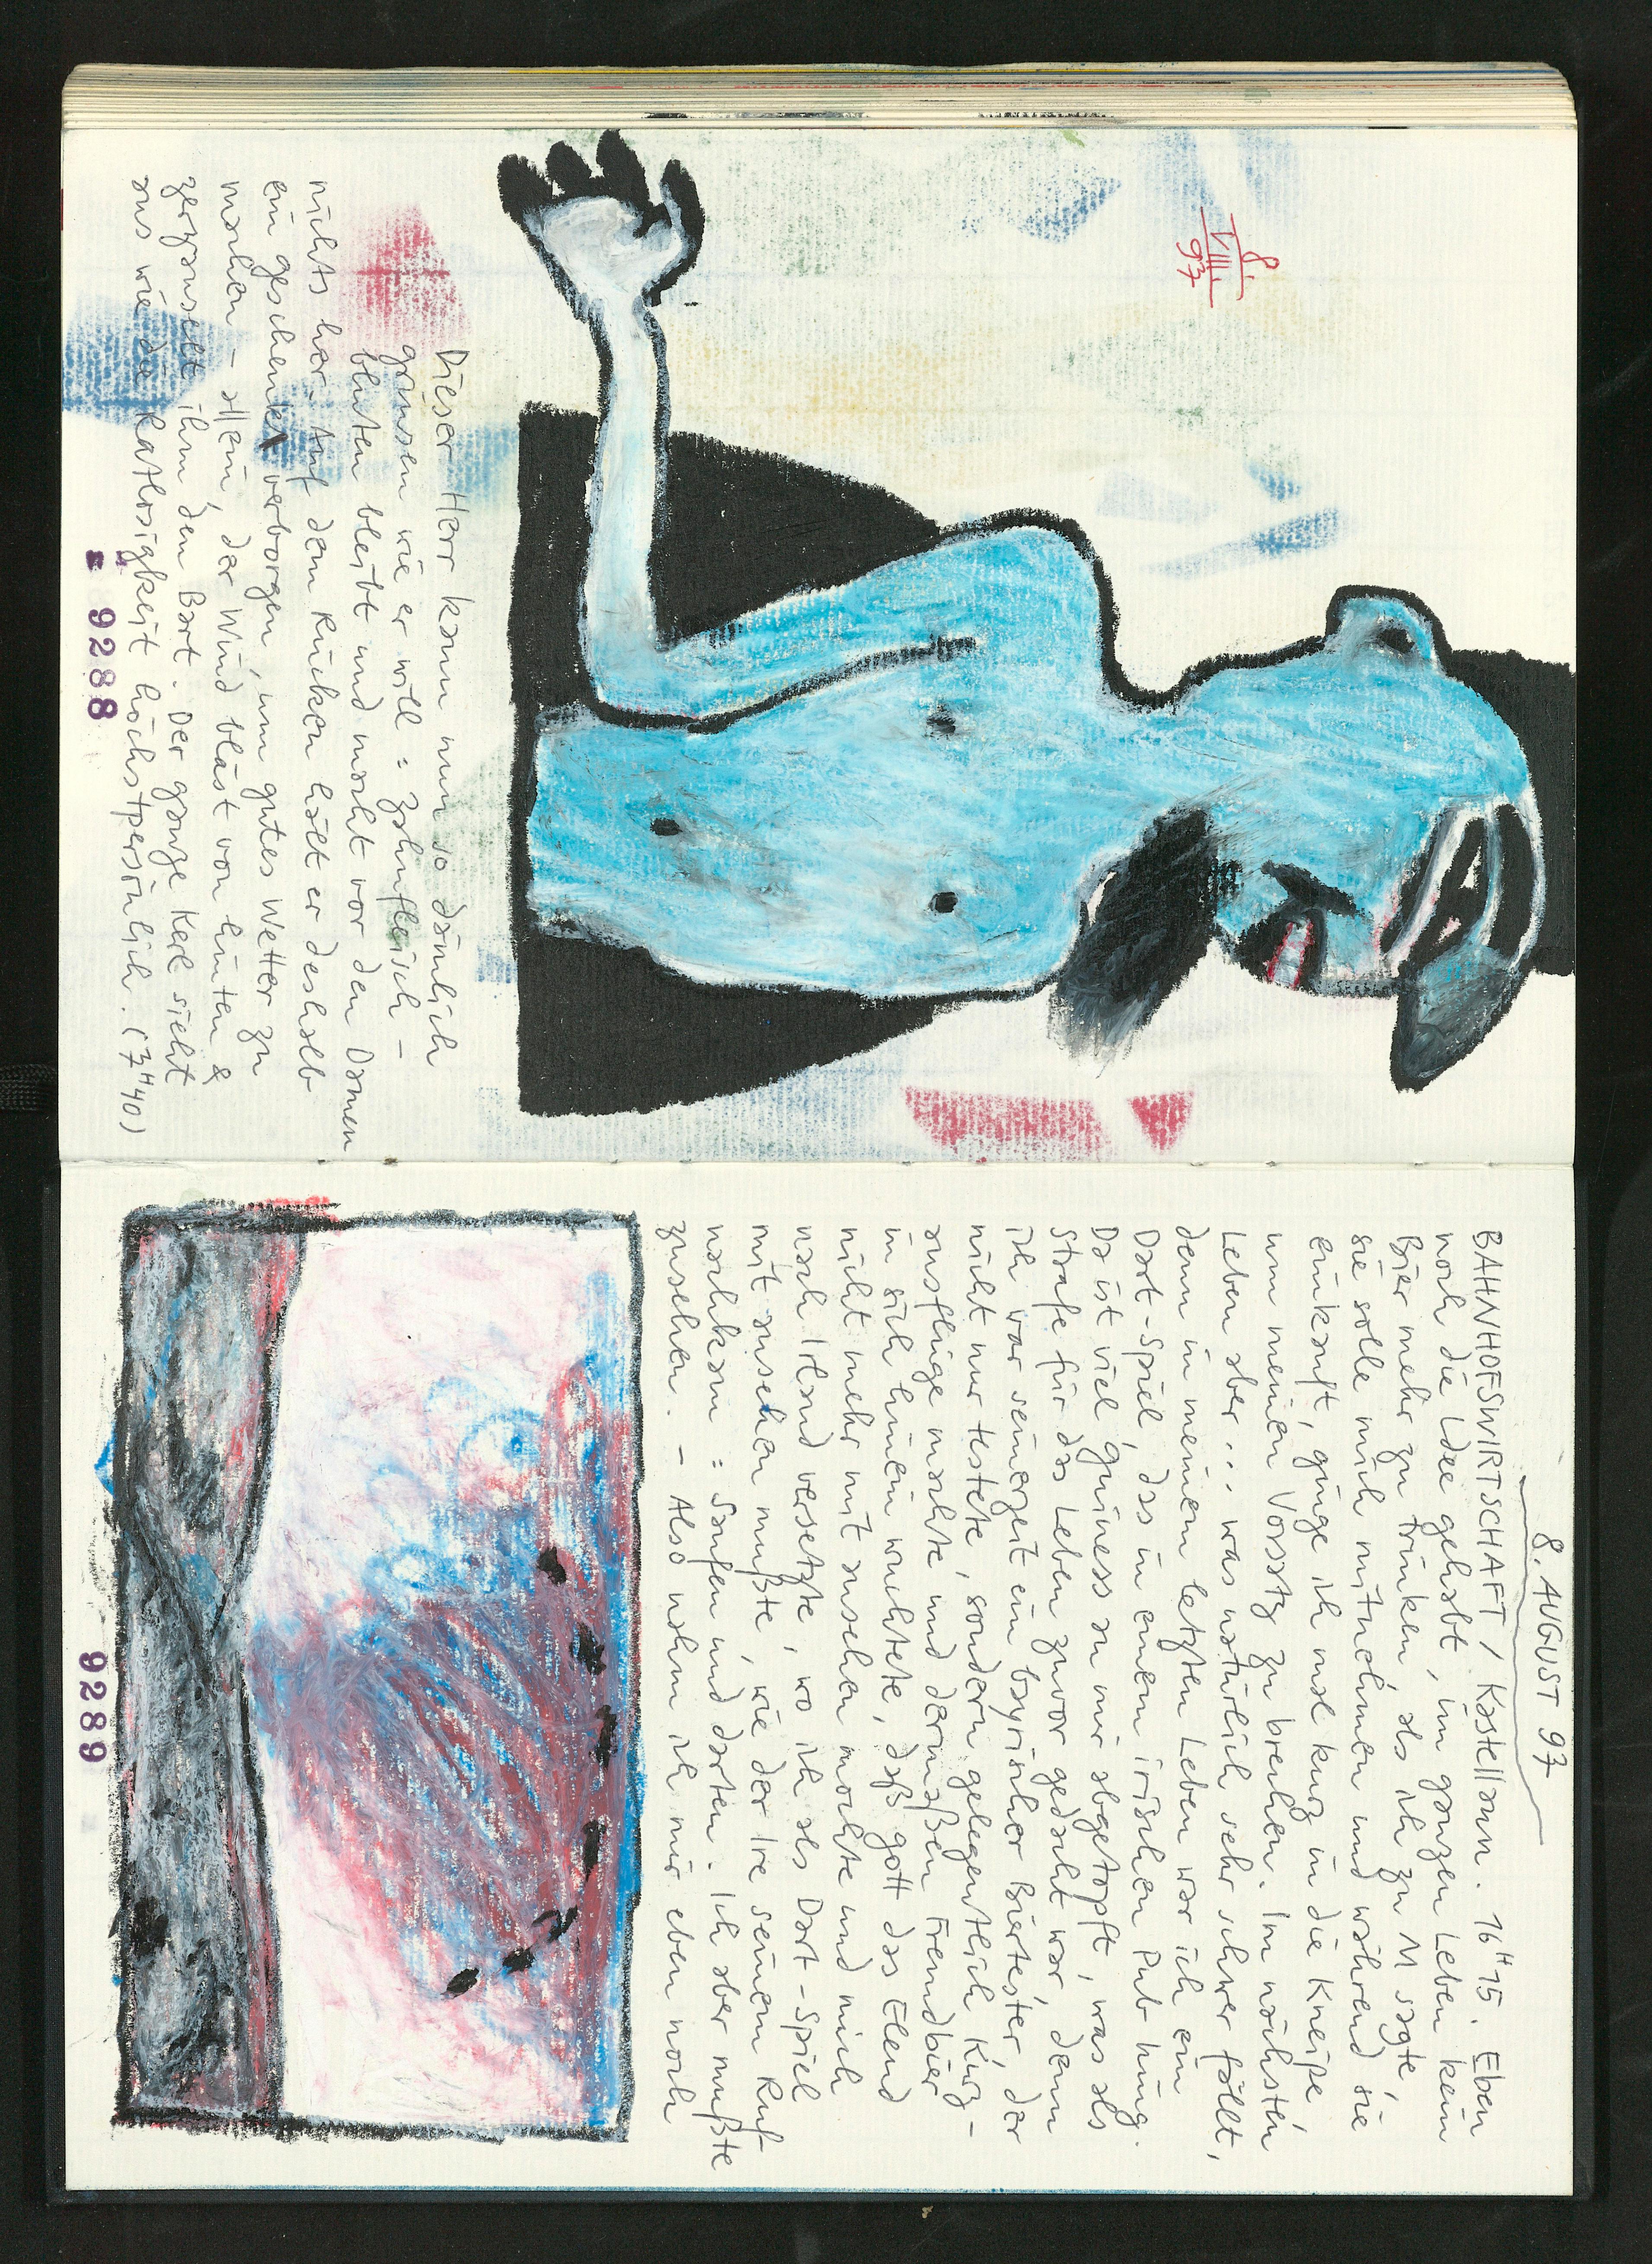 8.
VIII.
97
Dieser Herr kann nun so dämlich
grinsen wie er will = Zahnfleisch –
bluten bleibt und macht vor den Damen
nichts her. Auf dem Rücken hält er deshalb
ein geschenk verborgen, um gutes Wetter zu
machen – allein, der Wind bläst von hinten &
zerzauselt ihm den Bart. Der ganze Kerl sieht
aus wie die Ratlosigkeit höchstpersönlich. (7H40)
9288
8. AUGUST 97
BAHNHOFSWIRTSCHAFT / Kastellaun. 16H15. Eben
noch die Idee gehabt, im ganzen Leben kein
Bier mehr zu trinken, als ich zu M sagte,
sie solle mich mitnehmen und während sie
einkauft, ginge ich mal kurz in die Kneipe,
um meinen Vorsatz zu brechen. Im nächsten
Leben aber ... was natürlich sehr schwer fällt,
denn in meinem letzten Leben war ich ein
Dart-Spiel, das in einem irischen Pub hing.
Da ist viel guiness an mir abgetropft, was als
Strafe für das Leben zuvor gedacht war, denn
ich war seinerzeit ein bayrischer Biertester, der
nicht nur testete, sondern gelegentlich Kurz-
ausflüge machte und dermaßen Fremdbier
in sich hinein wuchtete, daß gott das Elend
nicht mehr mit ansehen mochte und mich
nach Irland versetzte, wo ich als Dart-Spiel
mit ansehen mußte, wie der Ire seinem Ruf
nachkam = Saufen und darten. Ich aber mußte
zusehen. – Also nahm ich mir eben noch
9289